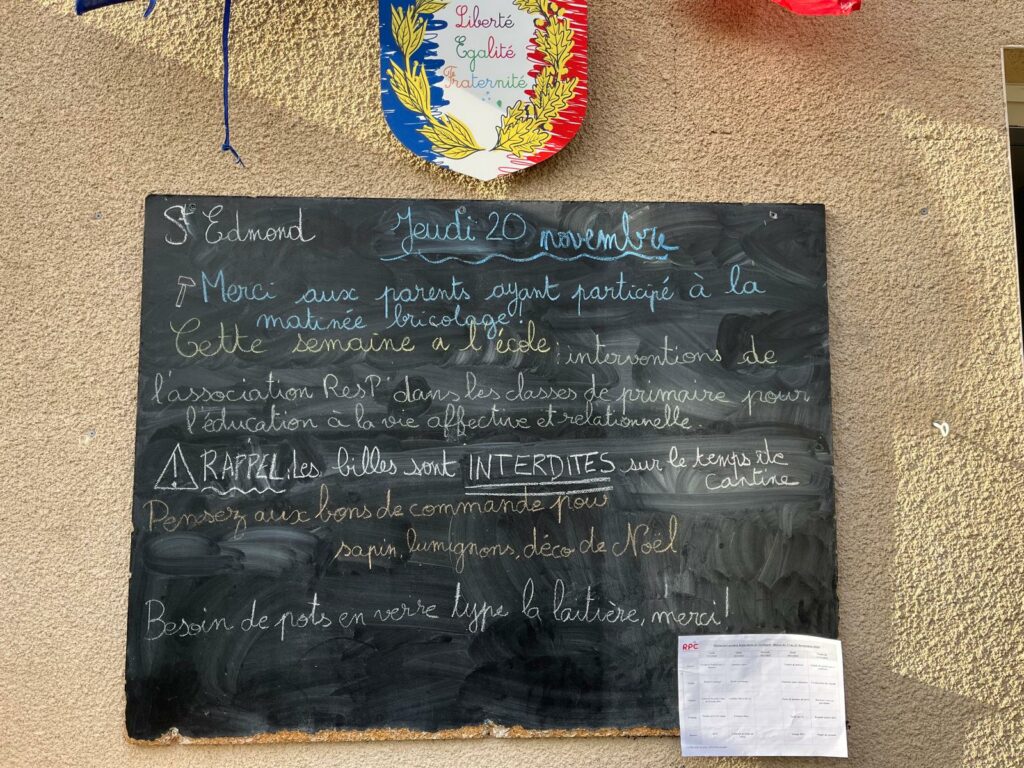 Liberté
Egalité
Fraternité
St Edmond Jeudi 20 novembre
Merci aux parents ayant participé à la
matinée bricolage!
Cette semaine a l'école: interventions de
l'association ResP' dans les classes de primaire pour
l'éducation à la vie affective et relationnelle.
RAPPEL: Les billes sont INTERDITES sur le temps de
cantine
Pensez aux bons de commande pour
sapin, lumignons, déco de Noël
Besoin de pots en verre type la laitière, merci!
RPC